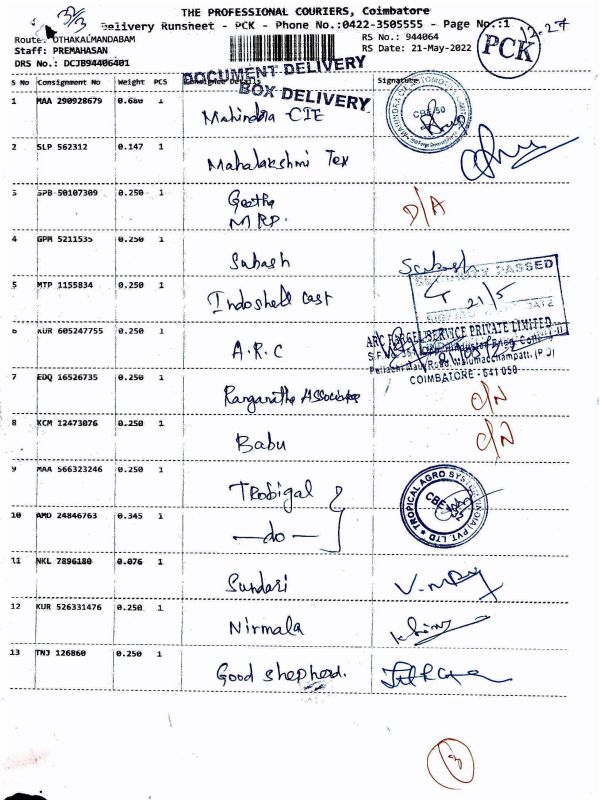 THE PROFESSIONAL COURIERS, Coimbatore
Delivery Runsheet - PCK - Phone No.:0422-3505555 - Page No.:1
Route: OTHAKALMANDABAM
RS No.: 944064
Staff: PREMAHASAN
RS Date: 21-May-2022
DRS No.: DCJB94406401
PCK
DOCUMENT DELIVERY
BOX DELIVERY
S No Consignment No Weight PCS Consignee Details Signature
1 MAA 290928679 0.680 1 Mahindra CIE
2 SLP 562312 0.147 1 Mahalakshmi Tex
3 SPB 50107309 0.250 1 Geetha D/A
MRP.
4 GPM 5211535 0.250 1 Subash Subash
SECURITY PASSED
21/5
DATE
5 MTP 1155834 0.250 1 Indoshell Cast
6 KUR 605247755 0.250 1 A.R.C
ARC PARCEL SERVICE PRIVATE LIMITED
COIMBATORE - 641 050
7 EDQ 16526735 0.250 1 Ranganatha Associates C/N
8 KCM 12473076 0.250 1 Babu C/N
9 MAA 566323246 0.250 1 Trobigal
TROPICAL AGRO SYSTEM INDIA PVT. LTD
CBE
10 AMD 24846763 0.345 1 —do—
11 NKL 7896180 0.076 1 Sundari
12 KUR 526331476 0.250 1 Nirmala
13 TNJ 126860 0.250 1 Good shepherd.